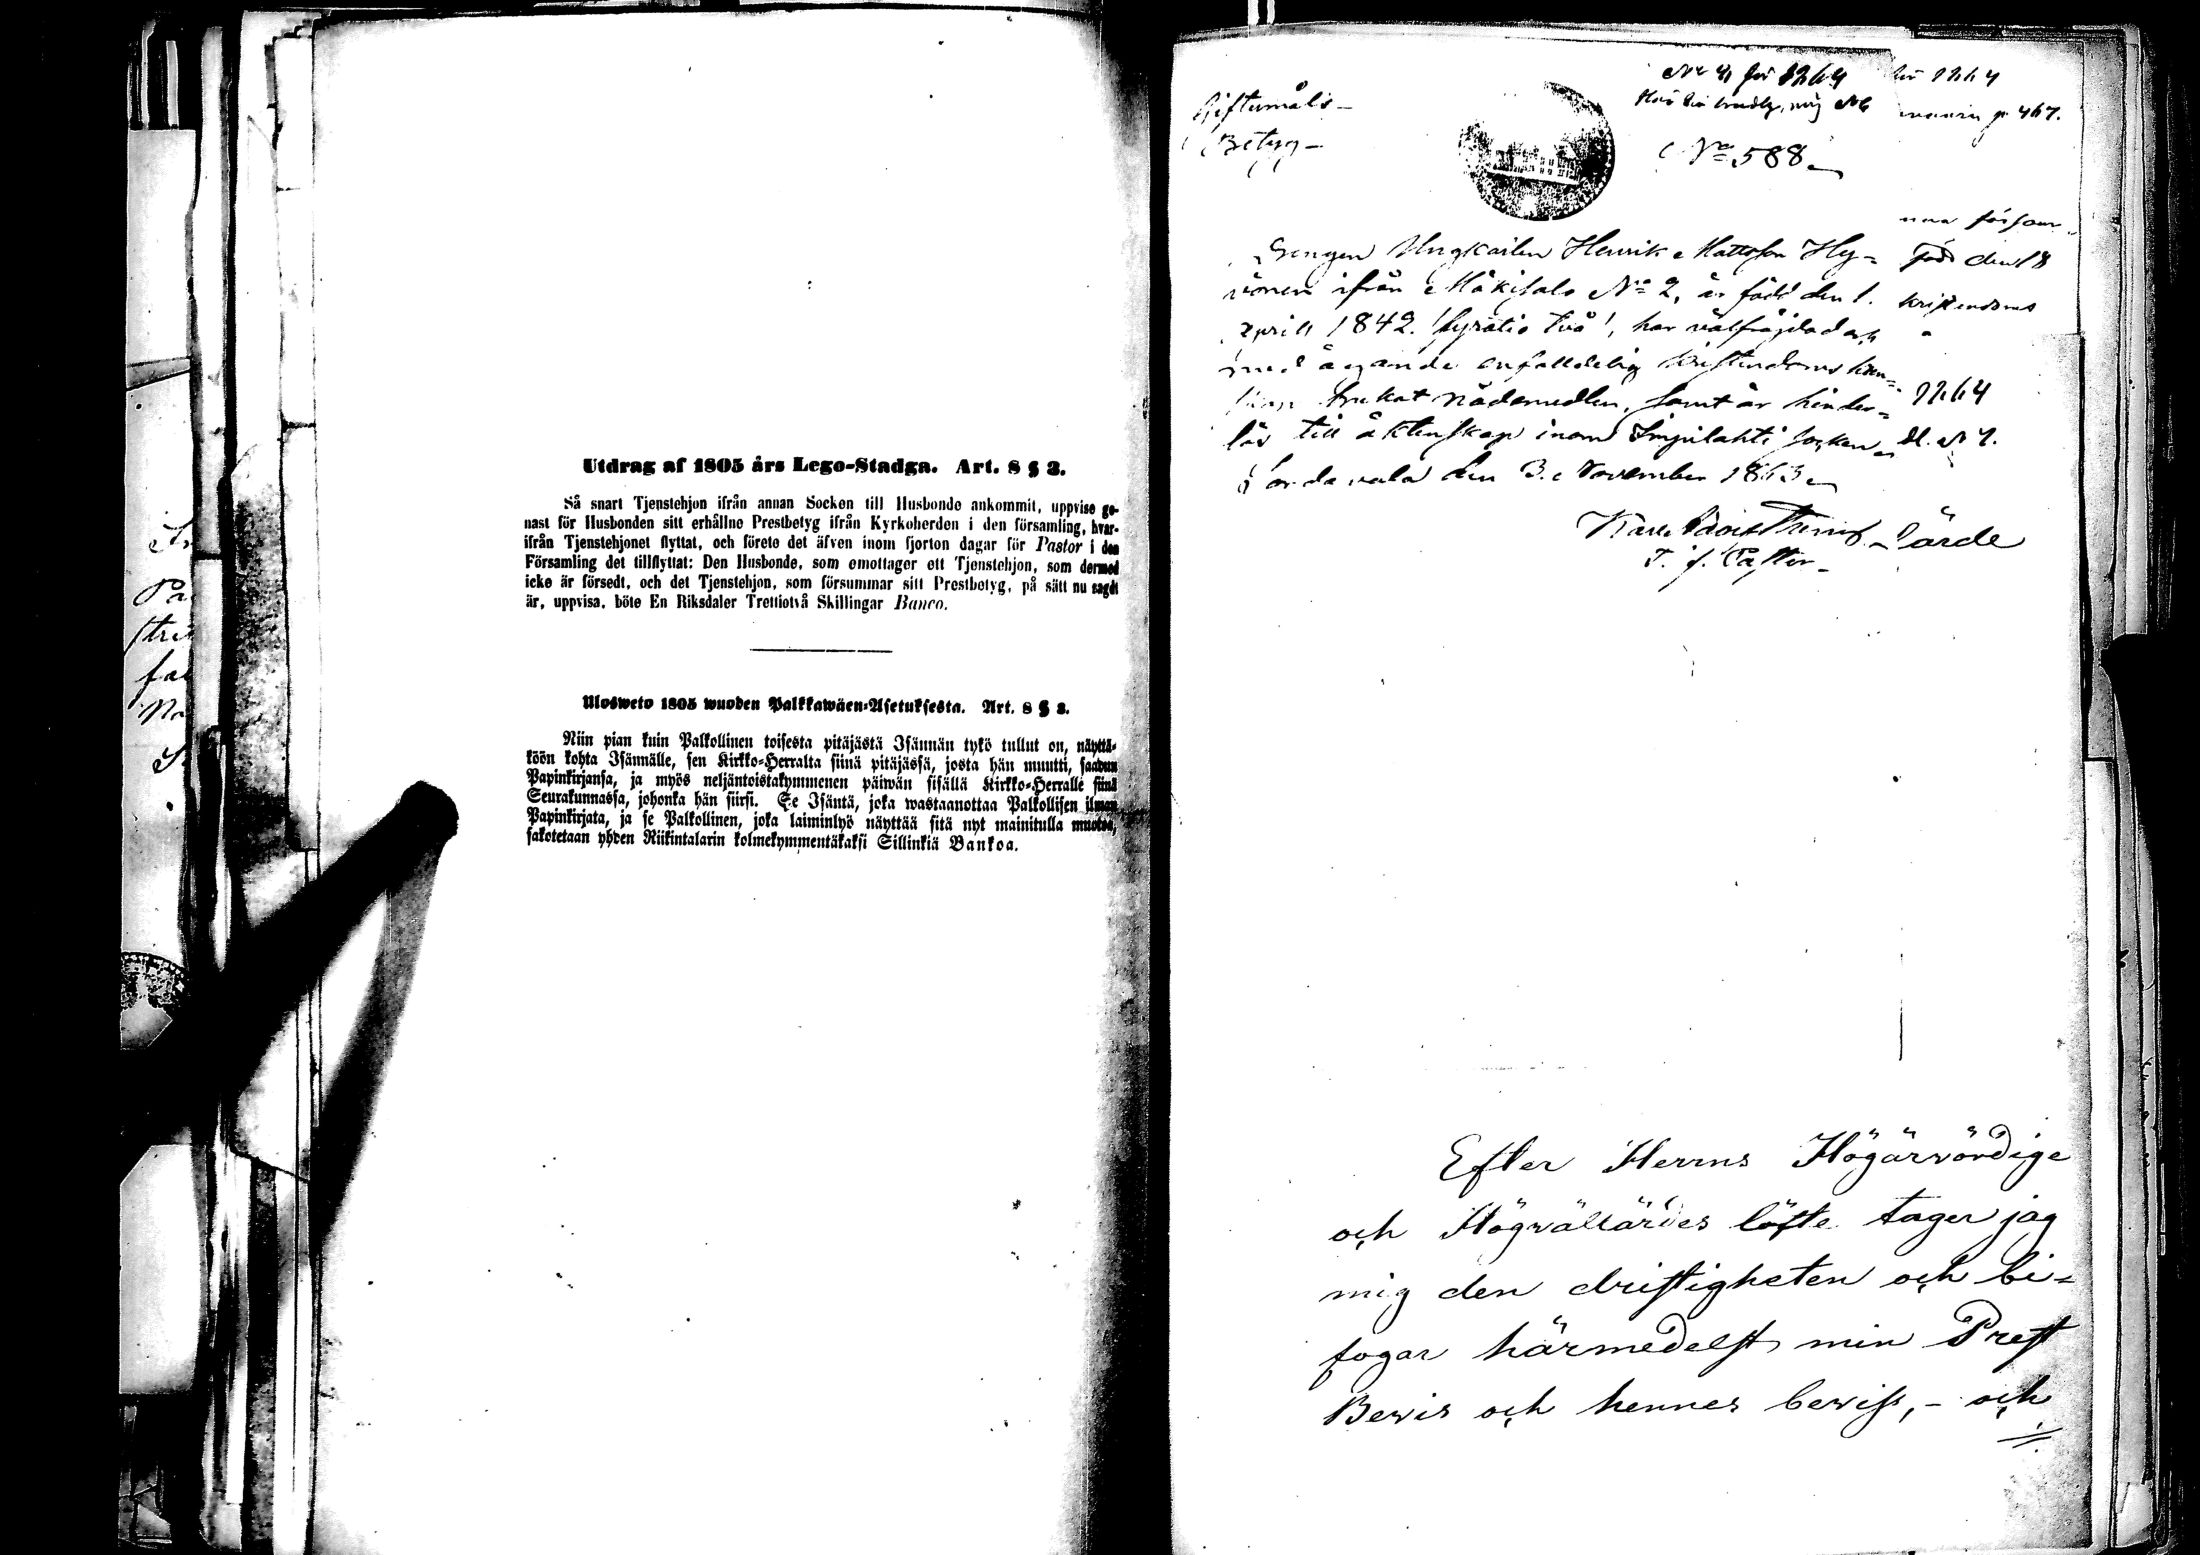 Utdrag af 1805 års Lego-Stadga. Art. 8 § 3.
Så snart Tjenstehjon ifrån annan Socken till Husbonde ankommit, uppvise ge-
nast för Husbonden sitt erhållne Prestbetyg ifrån Kyrkoherden i den församling, hvar-
ifrån Tjenstehjonet flyttat, och förete det äfven inom fjorton dagar för Pastor i den
Församling det tillflyttat: Den Husbonde, som emottager ett Tjenstehjon, som dermed
icke är försedt, och det Tjenstehjon, som försummar sitt Prestbetyg, på sätt nu sagdt
är, uppvisa, böte En Riksdaler Trettiotvå Skillingar Banco.
Ulosweto 1805 wuoden Palkkawäen-Asetuksesta. Art. 8 § 3.
Niin pian kuin Palkollinen toisesta pitäjästä Isännän tykö tullut on, näyttä-
köön kohta Isännälle, sen Kirkko-Herralta siinä pitäjässä, josta hän muutti, saadun
Papinkirjansa, ja myös neljäntoistakymmenen päiwän sisällä Kirkko-Herralle siinä
Seurakunnassa, johonka hän siirsi. Se Isäntä, joka wastaanottaa Palkollisen ilman
Papinkirjata, ja se Palkollinen, joka laiminlyö näyttää sitä nyt mainitulla muotoa,
sakotetaan yhden Riikintalarin kolmekymmentäkaksi Sillinkiä Bankoa.
Giftermåls-
Betyg-
för 1864
p 467.
No 588
Drengen Ungkarlen Henrik Mattsson Hy-
vönen ifrån Mäkisalo No 2, är född den 1.
april 1842. /fyratio två/, har välfräjdad och
med ägande enfalldelig kristendoms kun-
skap brukat nådamedlen, samt är hinder-
lös till äktenskap inom Impilahti socken
Sordavala den 3. November 1863
Karl
T. f. Pastor
församm
född den 18
kristendoms
1864
Lärde
Efter Herrns Högärvördige
och Högvällärdes löfte tager jag
mig den dristigheten och bi-
fogar härmedelst min Prest
Bevis och hennes beviss, - och